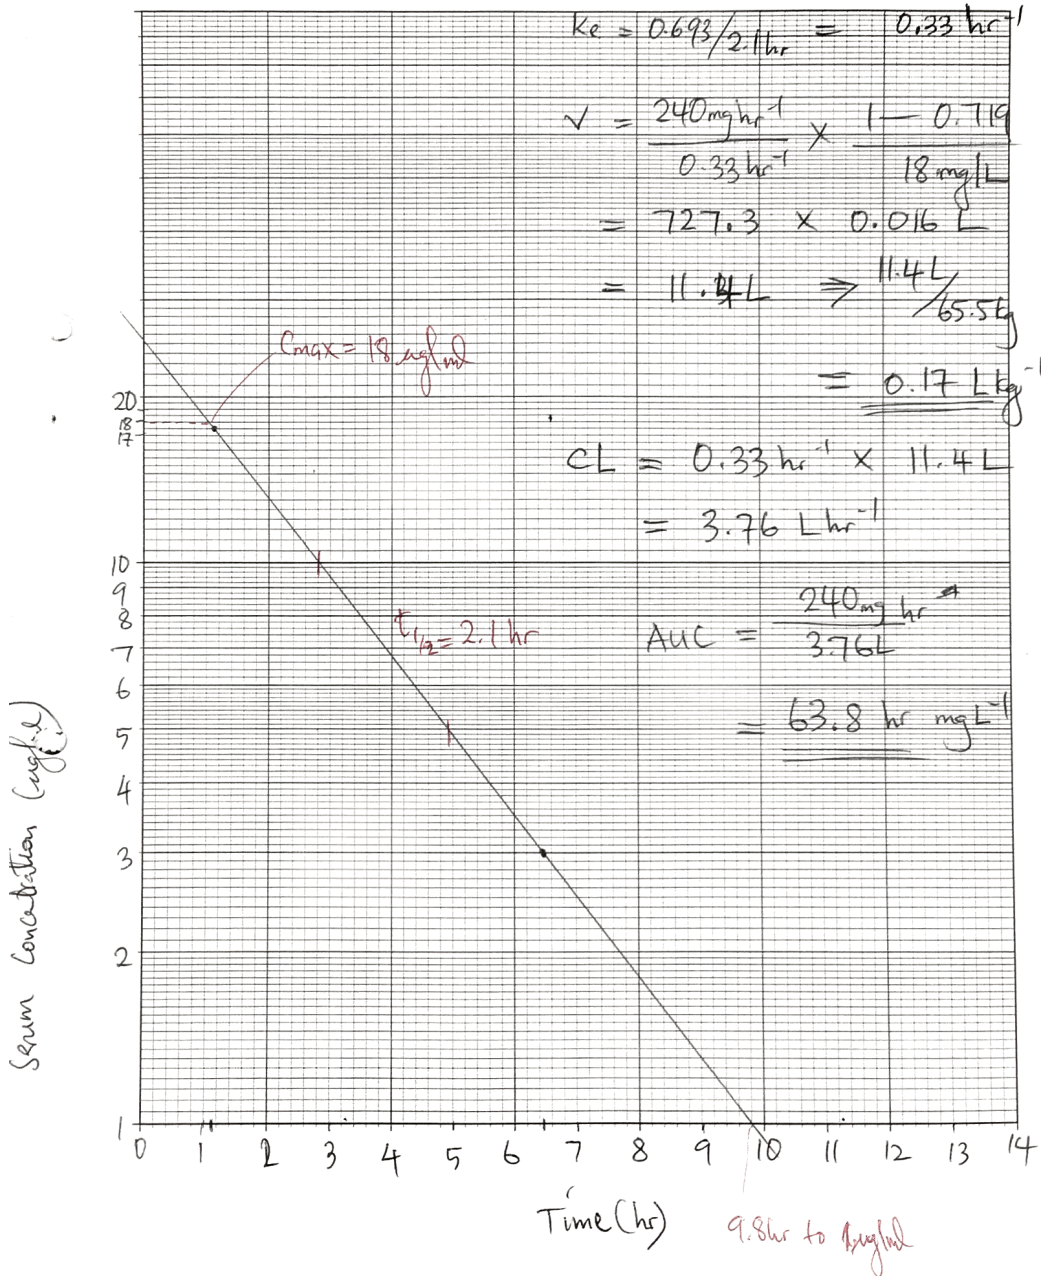 Ke = 0.693/2.1hr = 0.33 hr⁻¹
V = 240mg hr⁻¹ / 0.33 hr⁻¹ × 1 — 0.719 / 18 mg/L
= 727.3 × 0.016 L
= 11.4L ⇒ 11.4L/65.5kg
= 0.17 L kg⁻¹
Cmax = 18 ug/ml
CL = 0.33 hr⁻¹ × 11.4 L
= 3.76 L hr⁻¹
AUC = 240mg hr / 3.76L
= 63.8 hr mg L⁻¹
t1/2 = 2.1 hr
20
18
17
10
9
8
7
6
5
4
3
2
1
Serum Concentration (ug/ml)
0 1 2 3 4 5 6 7 8 9 10 11 12 13 14
Time (hr)
9.8hr to 1ug/ml